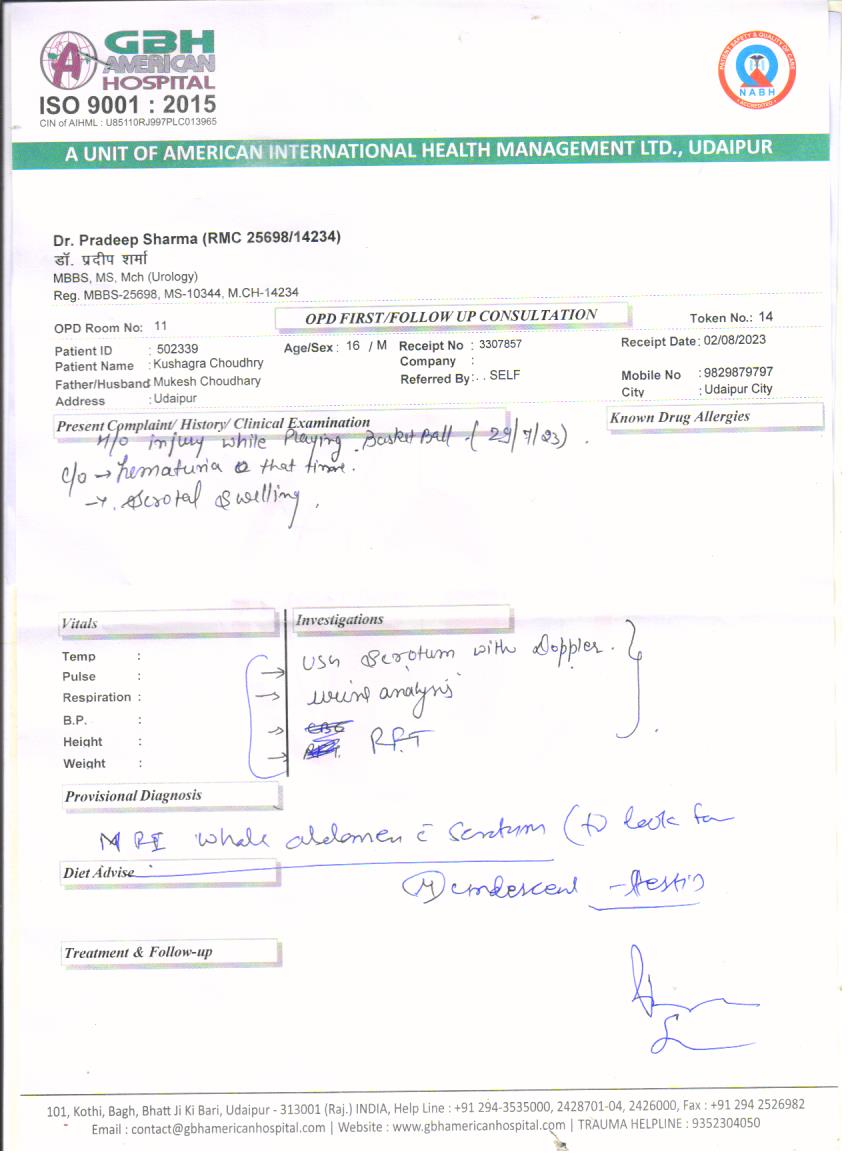 GBH
AMERICAN
HOSPITAL
ISO 9001 : 2015
CIN of AIHML : U85110RJ997PLC013965
PATIENT SAFETY & QUALITY OF CARE
NABH
ACCREDITED
A UNIT OF AMERICAN INTERNATIONAL HEALTH MANAGEMENT LTD., UDAIPUR
Dr. Pradeep Sharma (RMC 25698/14234)
डॉ. प्रदीप शर्मा
MBBS, MS, Mch (Urology)
Reg. MBBS-25698, MS-10344, M.CH-14234
OPD FIRST/FOLLOW UP CONSULTATION
OPD Room No: 11
Token No.: 14
Patient ID : 502339 Age/Sex : 16 / M Receipt No : 3307857 Receipt Date: 02/08/2023
Patient Name : Kushagra Choudhry Company :
Father/Husband Mukesh Choudhary Referred By: . . SELF Mobile No : 9829879797
Address : Udaipur City : Udaipur City
Present Complaint/ History/ Clinical Examination Known Drug Allergies
H/o injury while Playing Basket Ball. (29/7/23).
c/o → hematuria that time.
→ Scrotal Swelling.
Vitals Investigations
Temp : → USG Scrotum with Doppler.
Pulse :
Respiration : → urine analysis
B.P. : → CBC
Height : → RFT
Weight :
Provisional Diagnosis
MRI whole abdomen c̄ Scrotum (to look for
Diet Advise
undescend testis
Treatment & Follow-up
101, Kothi, Bagh, Bhatt Ji Ki Bari, Udaipur - 313001 (Raj.) INDIA, Help Line : +91 294-3535000, 2428701-04, 2426000, Fax : +91 294 2526982
Email : contact@gbhamericanhospital.com | Website : www.gbhamericanhospital.com | TRAUMA HELPLINE : 9352304050